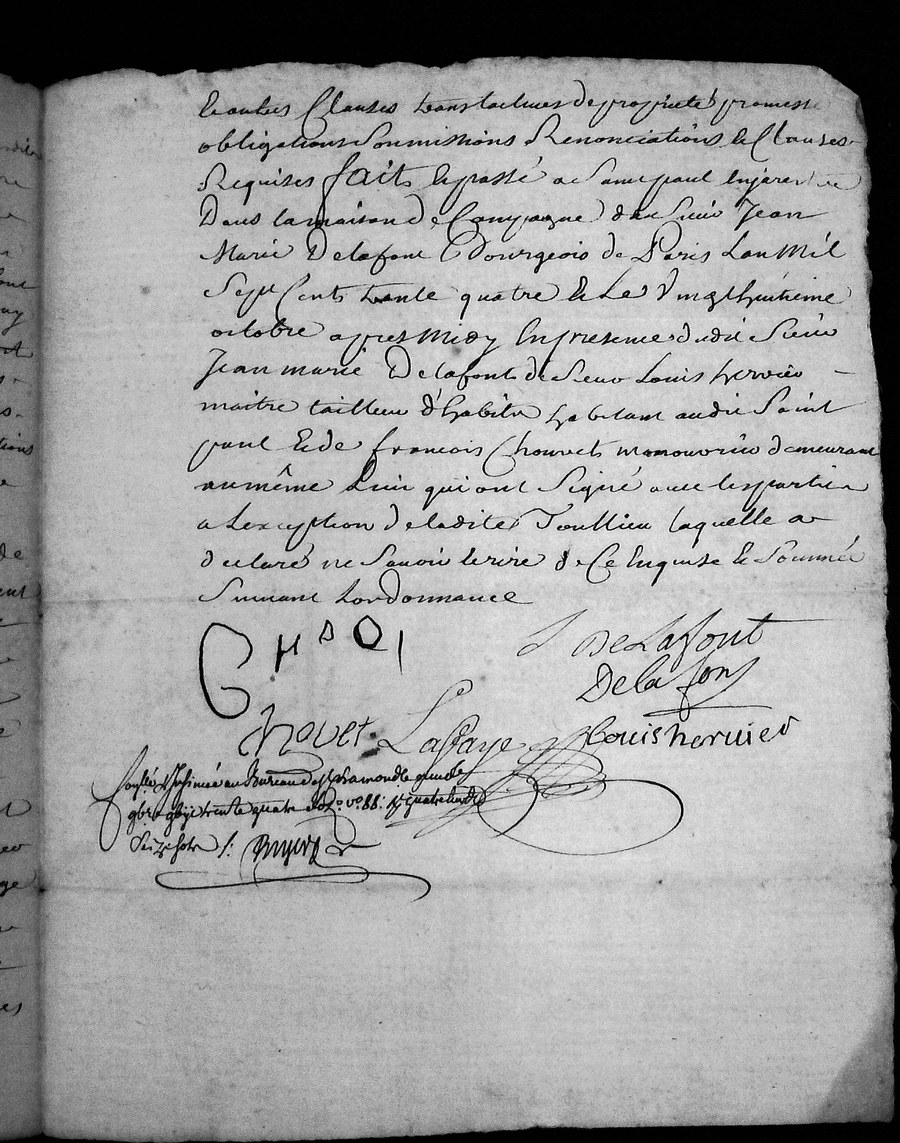 et autres Clauses translatives de proprieté promesse
obligations Soumissions Renonciations et Clauses
Requises fait et passé a Saint paul En jarest
Dans la maison de Campagne du Sieur Jean
Marie Delafont Bourgeois de Paris L'an Mil
Sept Cents trente quatre et Le Vingt huitieme
octobre apres Midy En presence dudit Sieur
Jean marie Delafont de Sieur Louis hervier
maitre tailleur d'habits habitant audit Saint
paul et de francois Chouvet manouvrier demeurant
au même Lieu qui ont Signé avec les parties
a L'exception de ladite Toullieu laquelle a
declaré ne Savoir Ecrire de Ce Enquise et Sommée
Suivant L'ordonnance
J Delafont
Delafont
Chovet Lafaye Louis hervier
au Bureau de St chamond le
gbre trente quatre vo 88